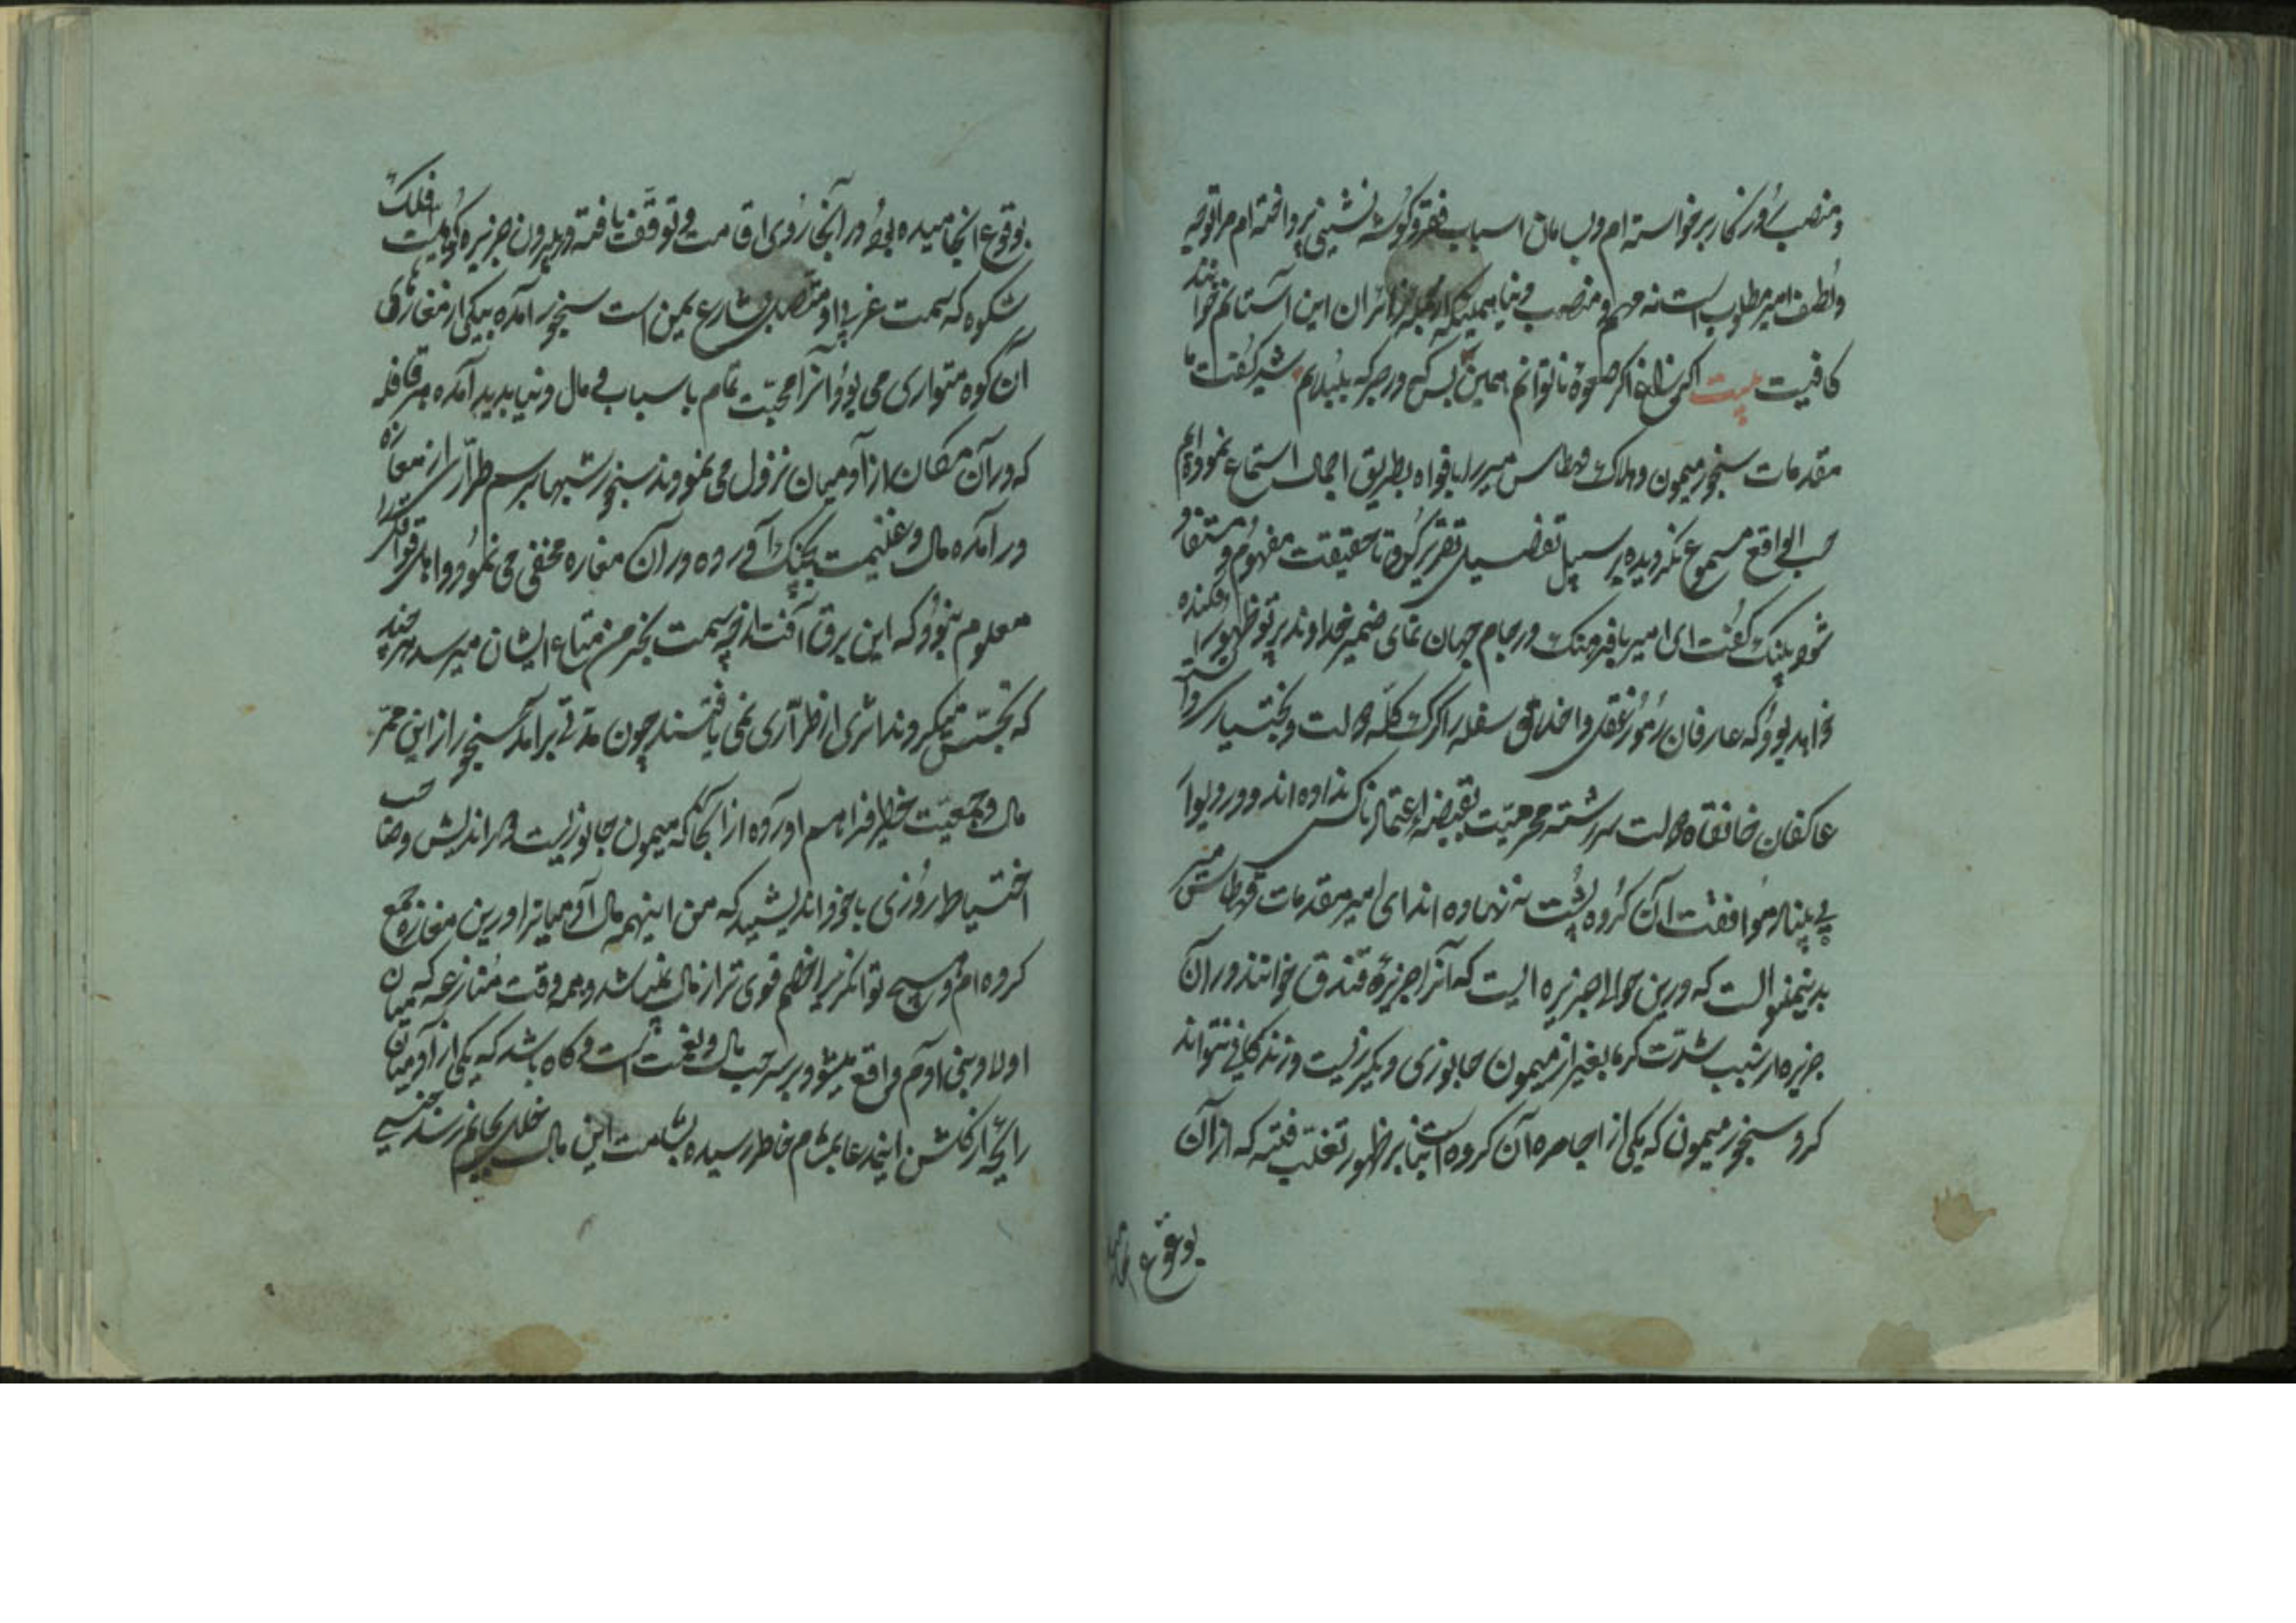 و منصب روزگار برخواسته‌ام و بسامان اسباب فقر و گوشه نشینی پرداخته‌ام مرا توجه
و لطف امیر مطلوب است نه مهم و منصب دنیا همینکه از جمله زائران این آستانم خوانند
کافیست بیت اگر صعوه ناتوانم همین بس که در جرگه بلبلانم شیر گفت ما
مقدمات سنجور میمون و هلاک میر را بافواه بطریق اجمال استماع نموده‌ایم
حسب الواقع مسموع نگردیده بر سبیل تفضیل تقریر کن تا حقیقت مفهوم و مستفاد
شود پلنگ گفت ای امیر بافرهنگ در جام جهان نمای ضمیر خداوند پرتو ظهور افکنده
خواهد بود که عارفان رموز عقل و اخلاق سفله را گرگ گله دولت و بختیاری
عاکفان خانقاه دولت سررشته محرمیت بقبضه اعتماد ناکس نداده‌اند و در دیوار
بی پناه موافقت آن گروه پشت ننهاده‌اند ای امیر مقدمات میر
بدینمنوالست که درین حوالی جزیره ایست که آنرا جزیره قندق خوانند و در آن
جزیره از سبب شدت گرما بغیر از میمون جانوری دیگر زیست و زندگانی نتواند
کرد سنجور میمون که یکی از اجامره آن گروه است بنابر ظهور تغلب فتنه که از آن
بوقوع انجامید
بوقوع انجامیده بود در آنجا روی اقامت و توقف نیافته و بیرون جزیره کوهیست فلک
شکوه که سمت غربی او متصل بشارع یمین است سنجور آمده بیکی از مغارهای
آن کوه متواری می بود و آنرا محبت تمام باسباب و مال دنیا پدید آمده هر قافله
که در آن مکان از آدمیان نزول می نمودند سنجور شبها برسم طراری از مغاره
در آمده مال و غنیمت بچنگ آورده در آن مغاره مخفی می نمود و اهالی قوافل را
معلوم نبود که این برق آفت از چه سمت بخرمن متاع ایشان میرسد هر چند
که تجسس میکردند اثری از طراری نمی یافتند چون مدتی برآمد سنجور از این ممر
مال و جمعیت خطیر فراهم آورده از آنجا که میمون جانوریست دوراندیش و صاحب
احتیاط روزی با خود اندیشید که من اینهمه مال آدمیانرا درین مغاره جمع
کرده‌ام و هیچ توانگر را خصم قوی تر از مال نمیباشد و همه وقت منازعه که میان
اولاد بنی آدم واقع میشود بر سر حب مال و نعمت است و گاه باشد که یکی از آدمیان
رایحه از گلشن این مدعا بمشام خاطر رسیده بشامت این مال خللی بجانم رسد